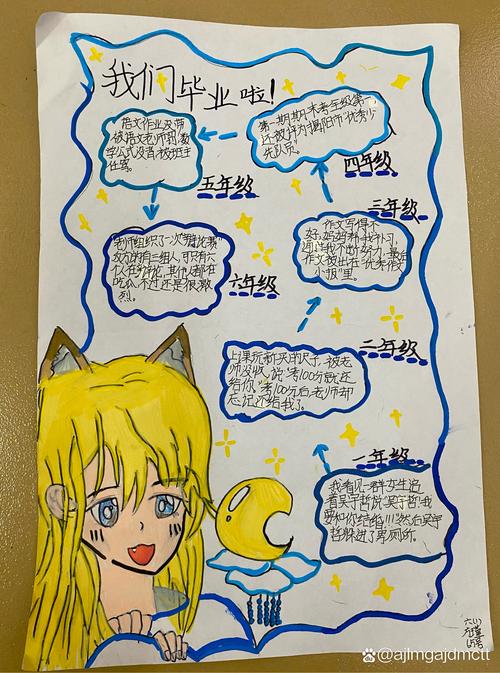 我们毕业啦！
语文作业没带
被语文老师罚
学公式没背被班主
任骂。
第一期期末考年级第一
还被评为揭阳市"优秀少
先队员"
五年级
四年级
三年级
作文写得不
好，妈妈
通过我不断努力，最后
作文被出在"优秀假
小报"里。
老师组织了一次"辩论赛"
女儿讲有三组人，可只有六
人在辩论，其他人都在
吃瓜，不过还是很激
烈。
六年级
二年级
上课玩新买的尺子，被老
师没收，说"考100分就还
给你，考100分后老师却
忘记还给我了。
一年级
我看见一群女生追
着吴宇哲说"吴宇哲！我
要和你结婚！！！"然后吴宇
哲躲进了男厕所。
六(1)
65号
@ajlmgajdmctt